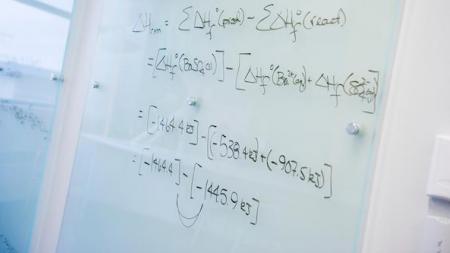 ΔH°rxn = ΣΔHf°(prod) - ΣΔHf°(react)
= [ΔHf°(BaSO4(s))] - [ΔHf°(Ba²⁺(aq)) + ΔHf°(SO4²⁻(aq))]
= [-1464.4 kJ] - [(-538.4 kJ) + (-907.5 kJ)]
= [-1464.4] - [-1445.9 kJ]